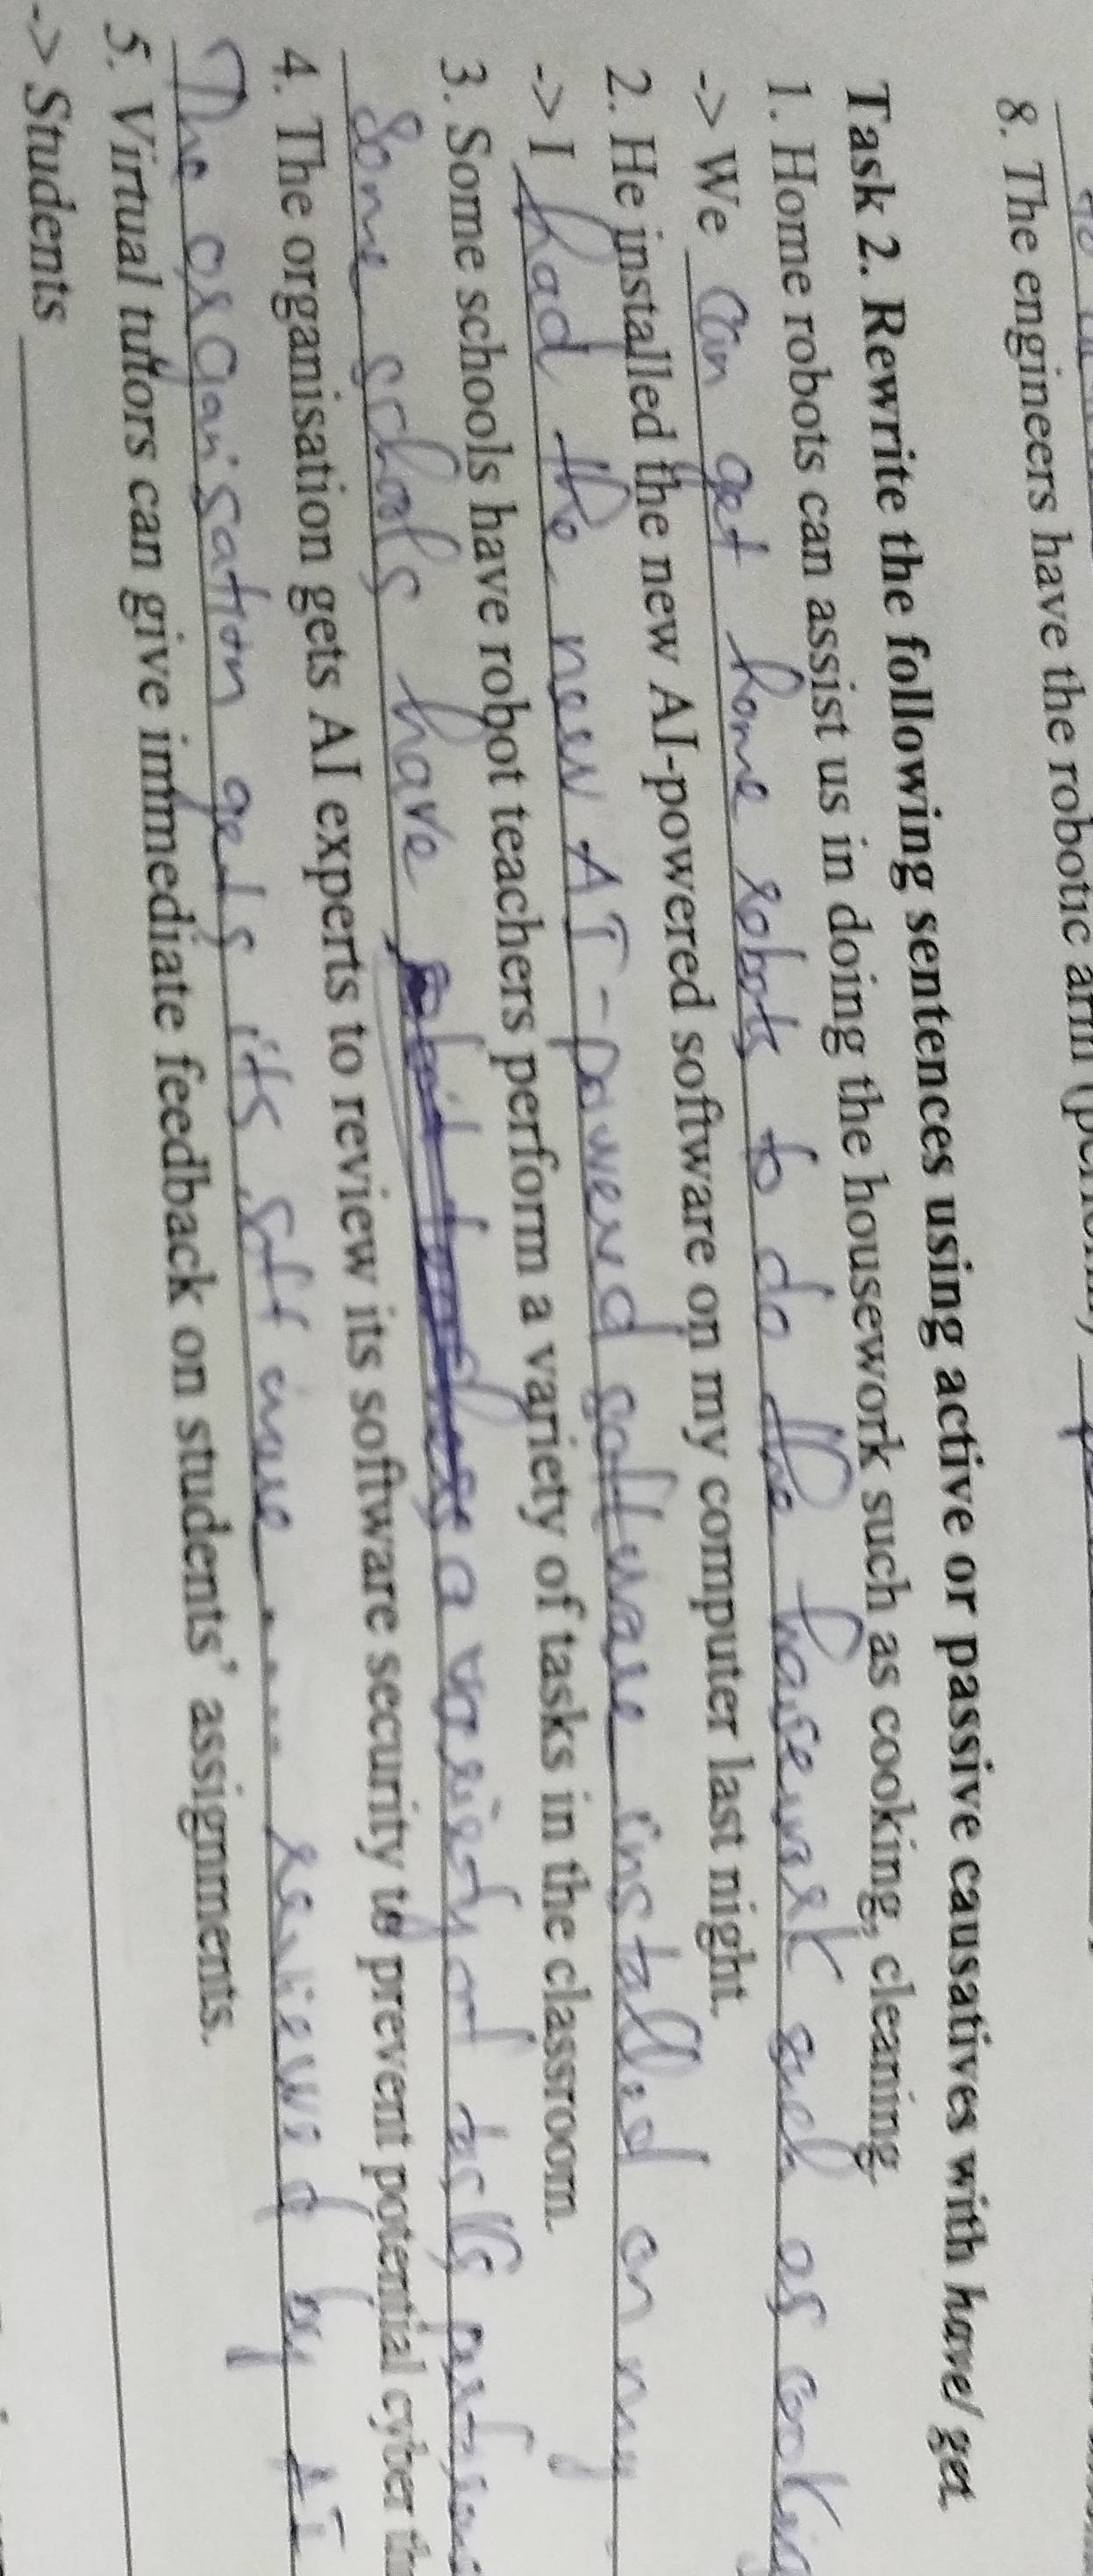 8. The engineers have the robotic arm
Task 2. Rewrite the following sentences using active or passive causatives with have/ get.
1. Home robots can assist us in doing the housework such as cooking, cleaning.
-> We can get home robots to do the housework such as cooking
2. He installed the new AI-powered software on my computer last night.
-> I had the new AI-powered software installed on my
3. Some schools have robot teachers perform a variety of tasks in the classroom.
Some schools have a variety of tasks
4. The organisation gets AI experts to review its software security to prevent potential cyber
The organisation gets its software reviewed by AI
5. Virtual tutors can give immediate feedback on students' assignments.
-> Students